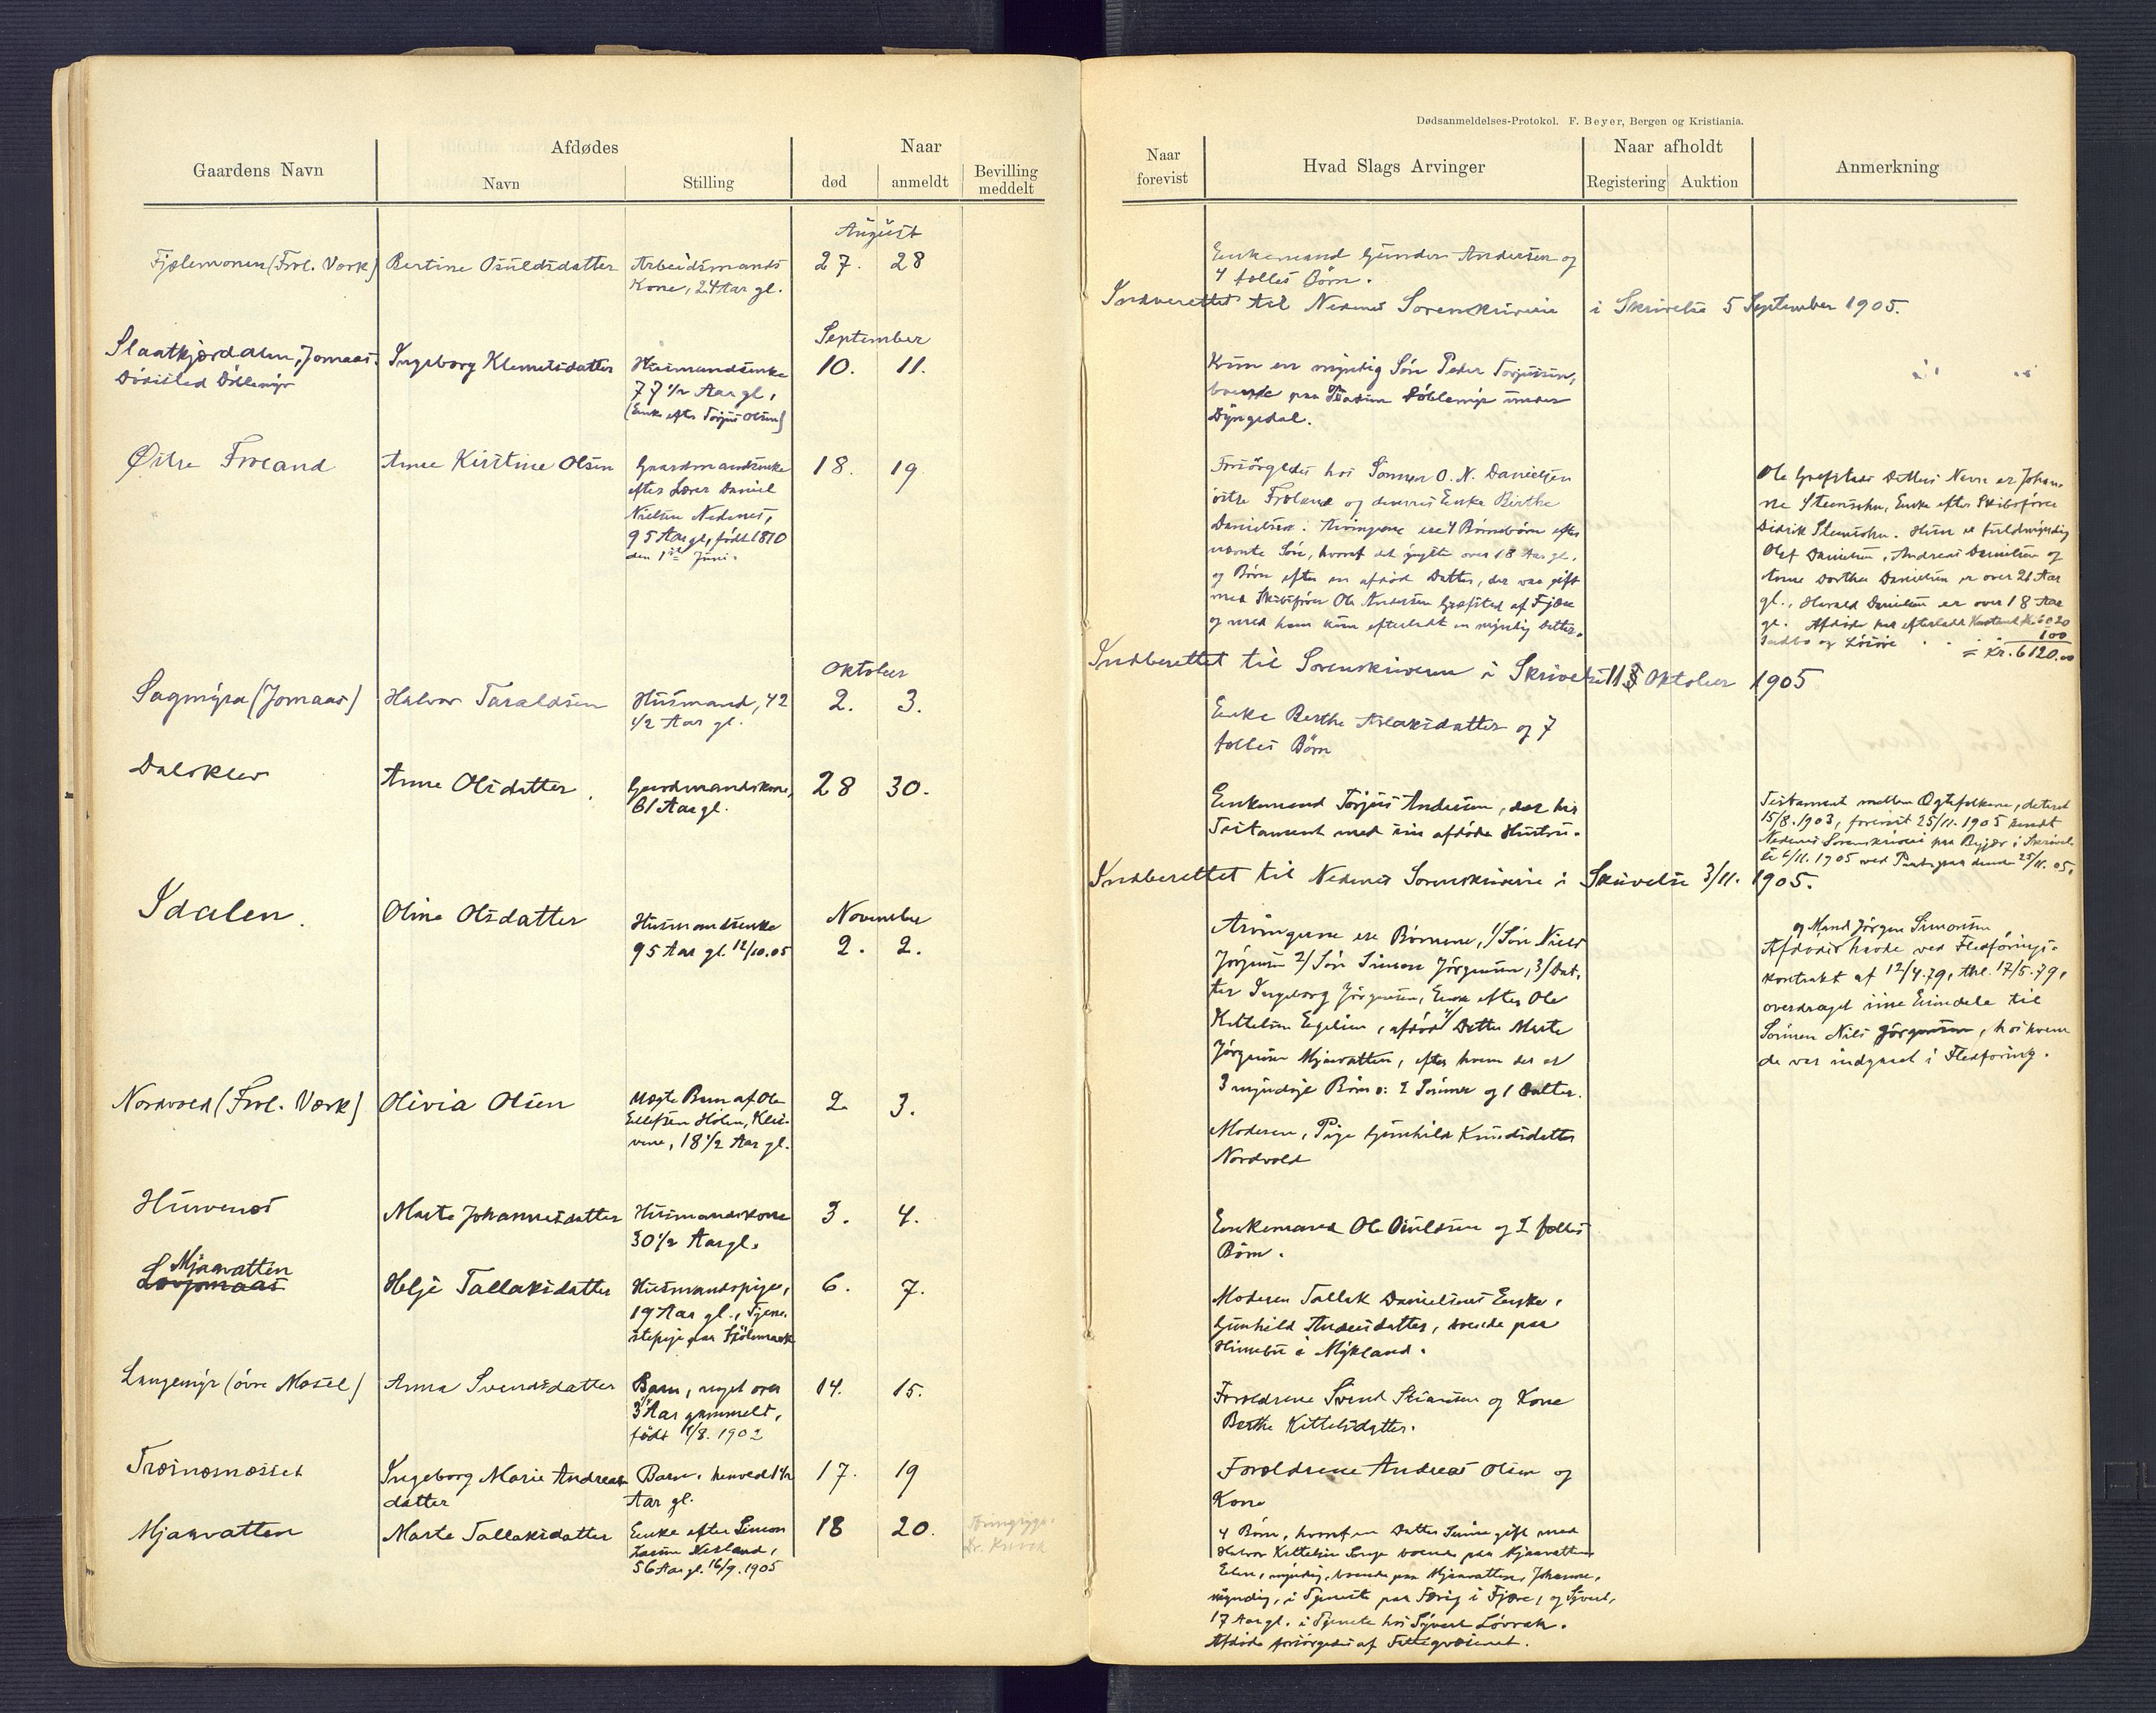 Dødsanmeldelses-Protokol. F. Beyer, Bergen og Kristiania.
Gaardens Navn
Afdødes
Navn
Stilling
Naar
død
anmeldt
Bevilling
meddelt
Naar
forevist
Hvad Slags Arvinger
Naar afholdt
Registering
Auktion
Anmerkning
August
Fjølemonen (Frol. Værk) Bertine Osuldsdatter Arbeidsmands 27. 28
Kone, 24 Aar gl.
Enkemand Gunder Andersen og
4 fælles Børn.
Indberettet til Nedenes Sorenskriveri i Skrivelse 5 September 1905.
September
Slaatkjærdalen, Jomaas. Ingeborg Klemetsdatter Husmandsenke 10. 11.
Dødssted Døblemyr
77 1/2 Aar gl,
(Enke efter Torjus Olsen)
Kun en myndig Søn Peder Torjussen,
boende paa Pladsen Døblemyr under
Dyngedal.
Østre Froland Anne Kirstine Olsen Gaardmandsenke 18. 19
efter Lærer Daniel
Nielsen Nedenes,
95 Aar gl, født 1810
den 1ste Juni.
Forsørgedes hos Sønnen O. N. Danielsen
østre Froland og dennes Enke Birthe
Danielsen. Arvingerne ere 4 Børnebørn efter
nævnte Søn, hvoraf det yngste over 18 Aar gl.
og Børn efter en afdød Datter, der var gift
med Skibsfører Ole Andersen Græfsted af Fjære
og med ham kun efterladt en myndig Datter.
Ole Græfstads Datters Navn er Johan-
ne Stensohn, Enke efter Skibsfører
Didrik Stensohn. Hun er fuldmyndig
Olef Danielsen, Andreas Danielsen og
Anne Dorthea Danielsen er over 21 Aar
gl., Harald Danielsen er over 18 Aar
gl. Afdøde har efterladt Kontant Kr. 6020
Indbo og Løsøre . . 100
= Kr. 6120.00
Indberettet til Sorenskriveren i Skrivelse 11 Oktober 1905
Oktober
Sagmyra (Jomaas) Halvor Taraldsen Husmand, 42 2. 3.
1/2 Aar gl.
Enke Berthe Aslaksdatter og 7
fælles Børn
Dalsklev Anne Olsdatter Gaardmandskone, 28 30.
61 Aar gl.
Enkemand Torjus Andersen, der har
Testament med sin afdøde Hustru.
Testament mellem Ægtefolkene, dateret
15/8. 1903, forevist 25/11. 1905 sendt
Nedenes Sorenskriveri paa Begjær i Skrivel-
Indberettet til Nedenes Sorenskriveri i Skrivelse 3/11. 1905.
November
Idalen. Oline Olsdatter Husmandsenke 2. 2.
95 Aar gl. 12/10.05
Arvingerne ere Børnene, 1/ Søn Niels
Jørgensen 2/ Søn Simon Jørgensen, 3/ Dat-
ter Ingeborg Jørgensen, Enke efter Ole
Kittelsen Egelien, afdød 4/ Datter Marte
Jørgensen Mjaavatten, efter hvem der er
3 myndige Børn o: 2 Sønner og 1 Datter.
og Mand Jørgen Simonsen
Afdøde havde ved Fledførings-
kontrakt af 12/4.79, thl. 17/5.79,
overdraget sine Eiendele til
Sønnen Niels Jørgensen, hos hvem
de var indgaaet i Fledføring.
Nordvold (Frol. Værk) Olivia Olsen Uægte Barn af Ole 2. 3.
Ellefsen Holen,
18 1/2 Aar gl.
Moderen, Pige Gunhild Knudsdatter
Nordvold
Husvenæs Marte Johannesdatter Husmandskone 3. 4.
30 1/2 Aar gl.
Enkemand Ole Osuldsen og 2 fælles
Børn.
Mjaavatten
Helje Tallaksdatter Husmandspige, 6. 7.
19 Aar gl., Tjene-
stepige paa Fjølemark
Moderen Tallak Danielsens Enke,
Gunhild Andersdatter, boende paa
Hinnebu i Mykland.
Langemyr (øvre Mosel) Anna Svendsdatter Barn, noget over 14. 15.
3 Aar gammelt,
født 1/8. 1902
Forældrene Svend Stiansen og Kone
Berthe Kittelsdatter.
Træsnæsmæsset Ingeborg Marie Andreas- Barn, henved 1 1/2 17. 19
datter Aar gl.
Forældrene Andreas Olsen og
Kone
Mjaavatten Marte Tallaksdatter Enke efter Simon 18 20.
Larsen Nesland,
56 Aar gl. 16/9. 1905
4 Børn, hvoraf en Datter Signe gift med
Halvor Kittelsen boende paa Mjaavatten
Ellen, myndig, boende paa Mjaavatten, Johanne,
myndig, i Tjeneste paa i Fjære, og Syvert,
17 Aar gl. i Tjeneste hos Syvert Løvrak.
Afdøde forsørgedes af Fattigvæsenet.